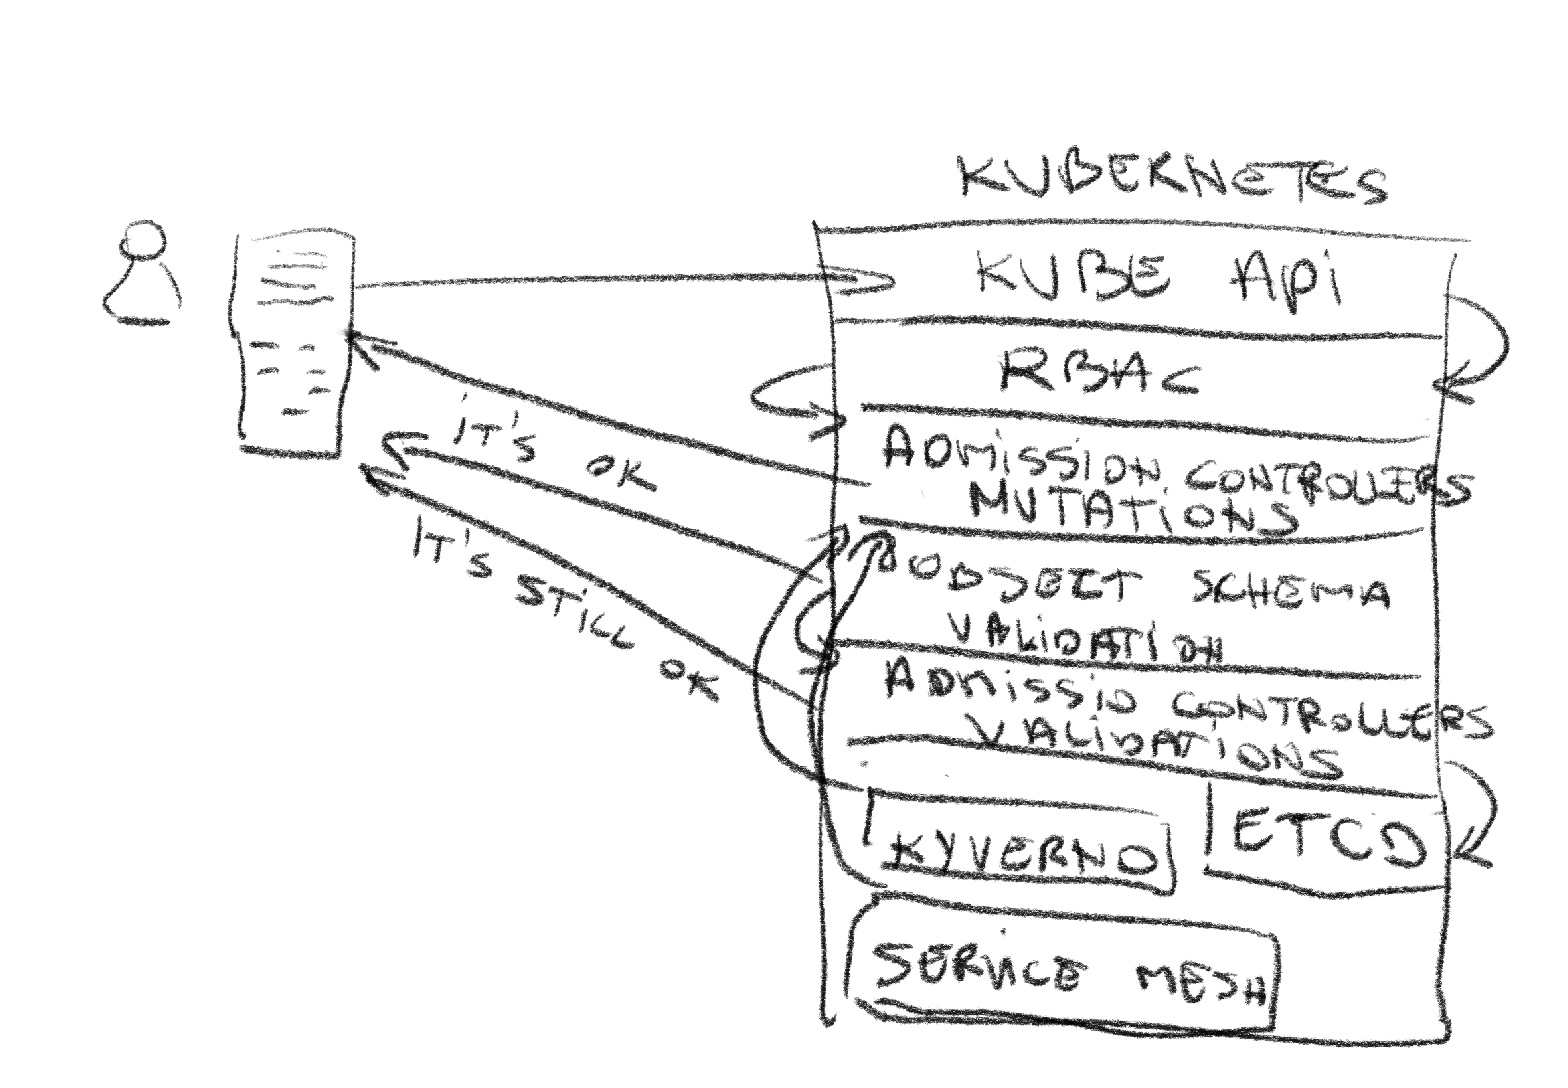 KUBERNETES
KUBE Api
RBAC
ADMISSION CONTROLLERS
MUTATIONS
OBJECT SCHEMA
VALIDATION
ADMISSIO CONTROLLERS
VALIDATIONS
KYVERNO
ETCD
SERVICE MESH
IT'S OK
IT'S STILL OK